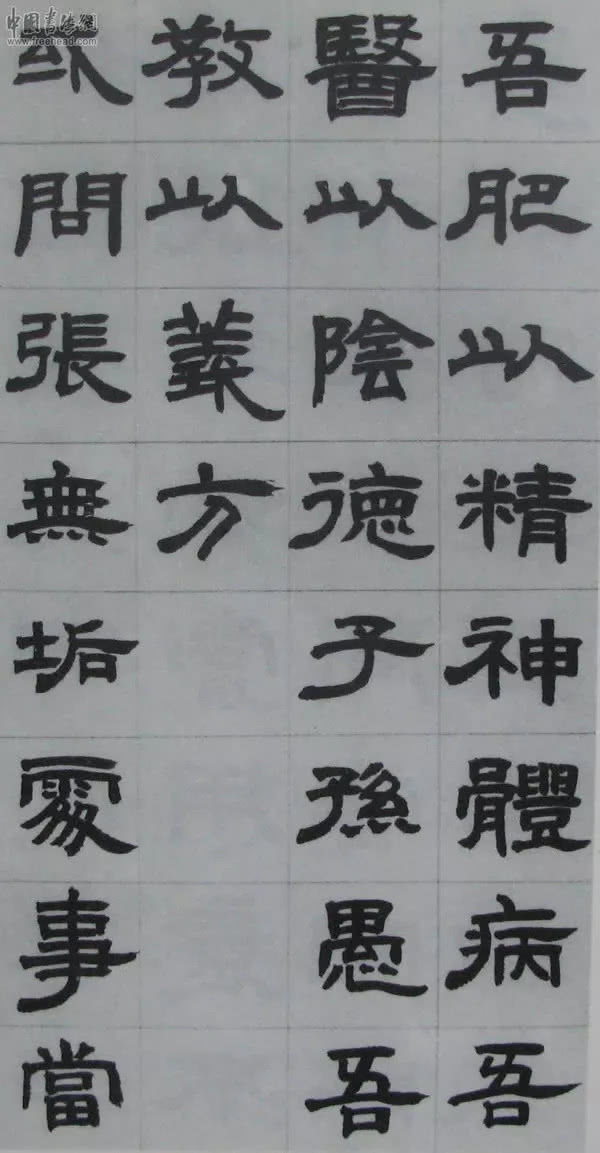 吾肥以精神體病吾
醫以陰德子孫愚吾
教以義方
或問張無垢處事當
中國書法網
www.freehead.com